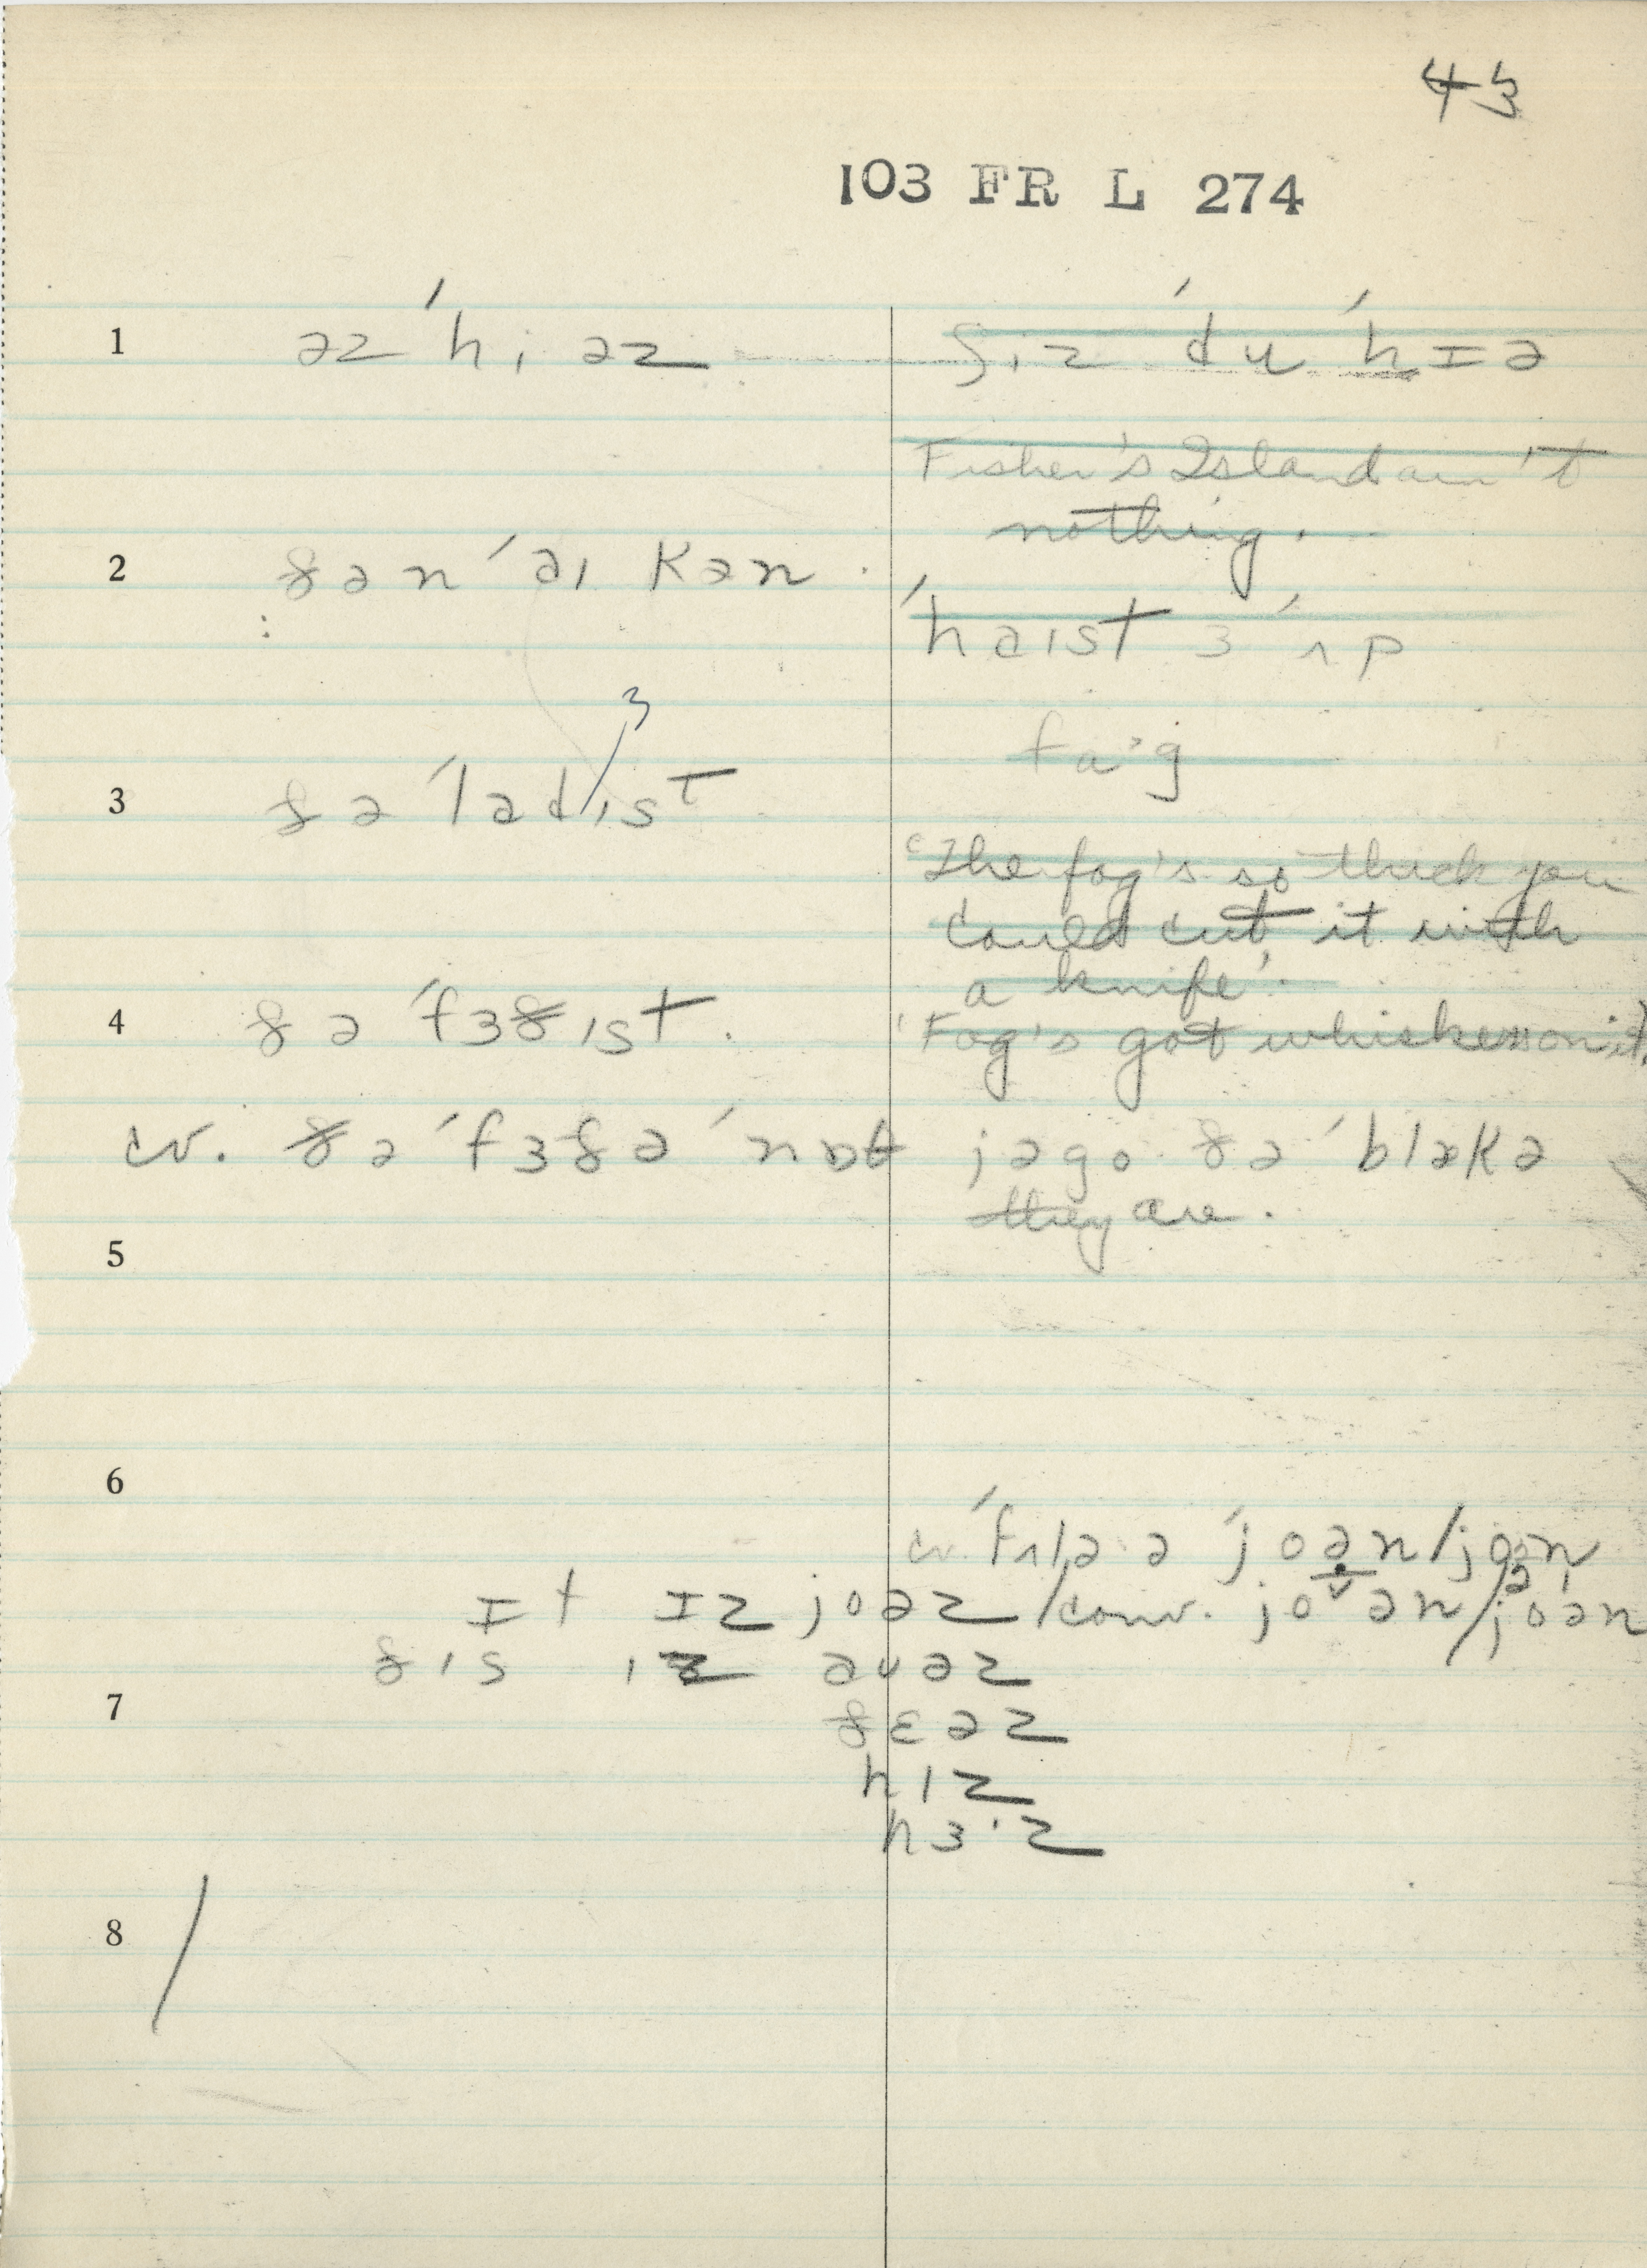 43
103 FR L 274
1 əz ˈhi əz ʃiz ˈdu ˈhɪə
Fisher's Island ain't
nothing.
2 ðən ˈaɪ kən . ˈhaɪst ɜ ˈʌp
3 ðə ˈladist
3
fa·g
'The fog's so thick you
could cut it with
a knife'.
4 ðə ˈfɜðist. 'Fog's got whiskers on it'.
cv. ðə ˈfɜðə ˈnɒt jə go ðə ˈblækə
they are.
5
6
cv.
ɪt ɪz joəz / conv. jo˅ən / joən
ðis iz auəz
7 ðɛəz
hiz
hɜ·z
8 /